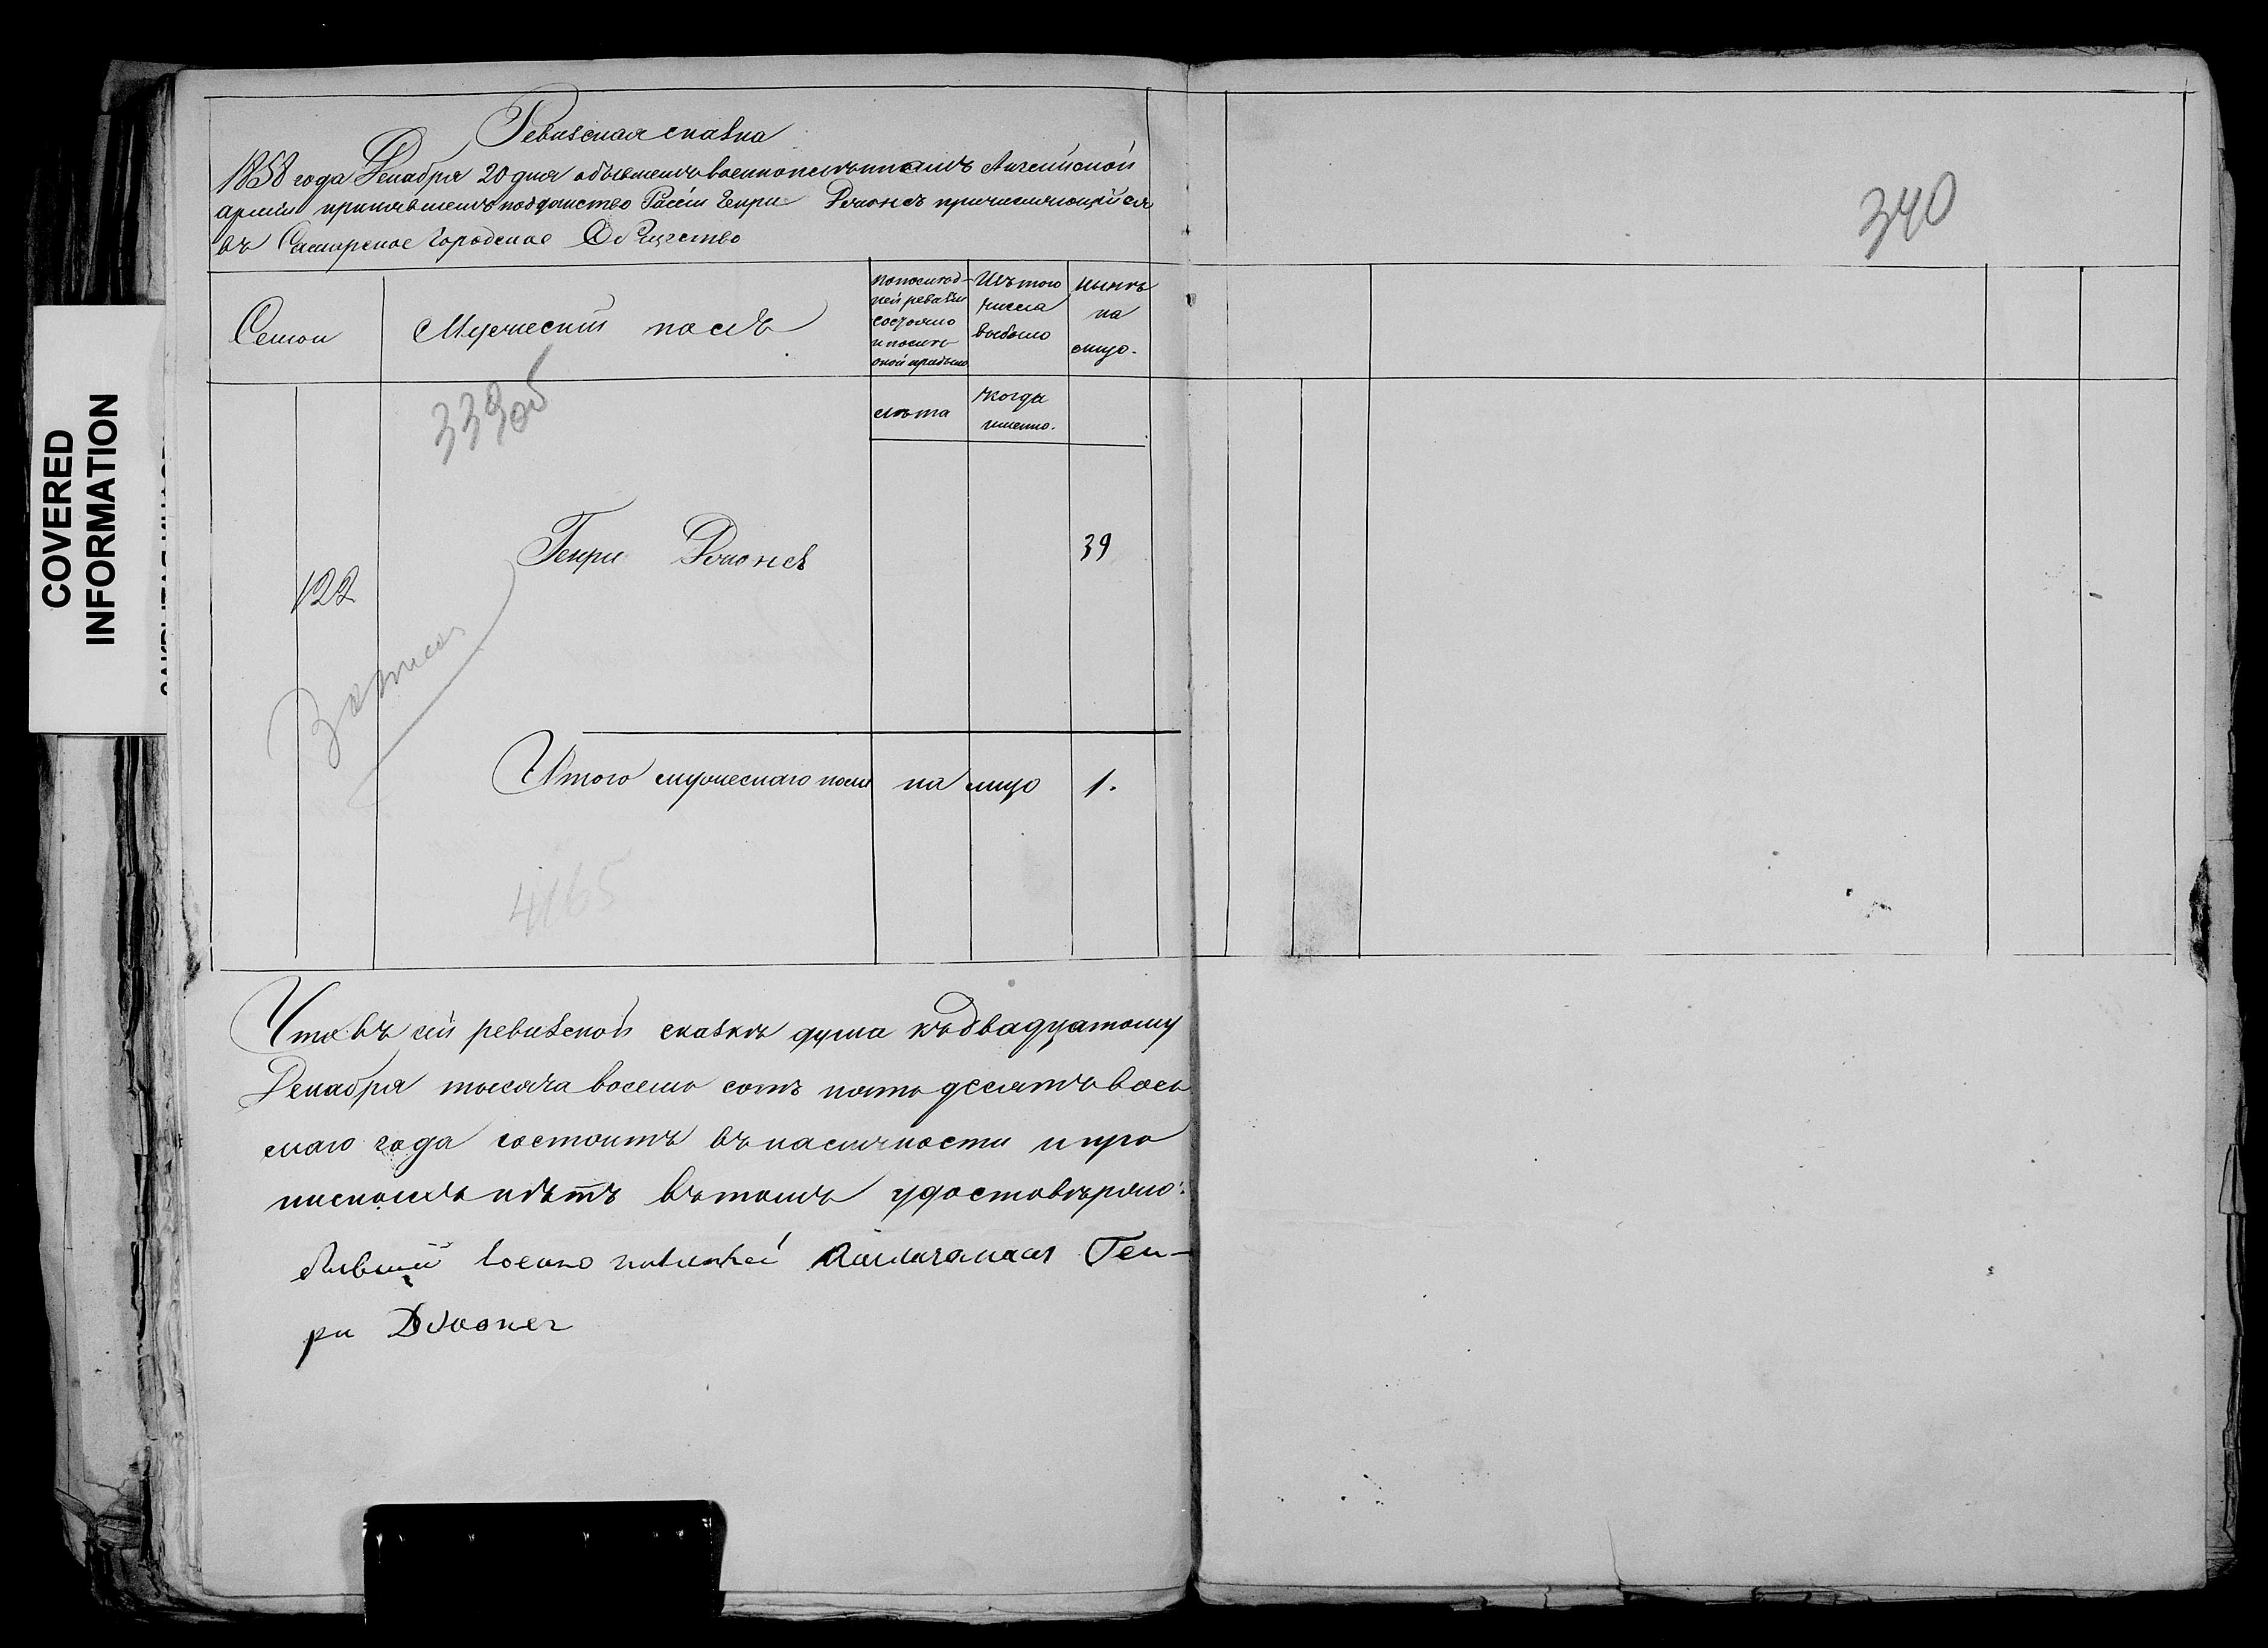 Ревизская сказка
1858 года Декабря 20 дня о бывшемъ военнопленномъ Англійской
арміи принявшемъ подданство Россіи Генри Джонсъ причисляющійся
въ Самарское городское Общество
340
Семьи
Мужескій полъ
По послѣд-
ней ревизіи
состояло
и послѣ
оной прибыло
Изъ того
числа
выбыло
Нынѣ
на
лицо.
339об
лѣта
Когда
именно.
122
Генри Джонсъ
39
Итого мужескаго пола на лицо 1.
4165
Что въ сей ревизской сказкѣ душа къ двадцатому
Декабря тысяча восемь сотъ пятьдесятъ вось
маго года состоитъ въ наличности и про
писныхъ нѣтъ въ томъ удостовѣряю:
бывшій военно пленной Ген-
ри Джонсъ
COVERED
INFORMATION